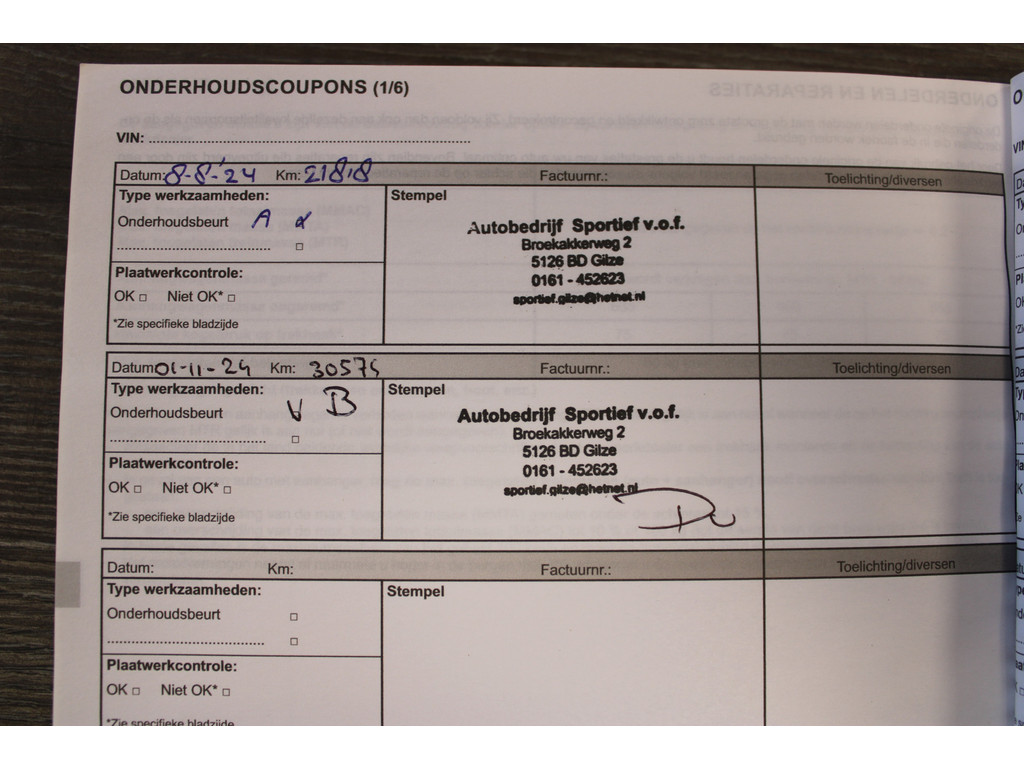 ONDERHOUDSCOUPONS (1/6)
VIN:
Datum: 8-8-'24 Km: 21818 Factuurnr.: Toelichting/diversen
Type werkzaamheden: Stempel
Onderhoudsbeurt A
Autobedrijf Sportief v.o.f.
Broekakkerweg 2
5126 BD Gilze
0161 - 452623
sportief.gilze@hetnet.nl
Plaatwerkcontrole:
OK □ Niet OK* □
*Zie specifieke bladzijde
Datum 01-11-24 Km: 30575 Factuurnr.: Toelichting/diversen
Type werkzaamheden: Stempel
Onderhoudsbeurt V B
Autobedrijf Sportief v.o.f.
Broekakkerweg 2
5126 BD Gilze
0161 - 452623
sportief.gilze@hetnet.nl
Plaatwerkcontrole:
OK □ Niet OK* □
*Zie specifieke bladzijde
Datum: Km: Factuurnr.: Toelichting/diversen
Type werkzaamheden: Stempel
Onderhoudsbeurt □
Plaatwerkcontrole:
OK □ Niet OK* □
*Zie specifieke bladzijde